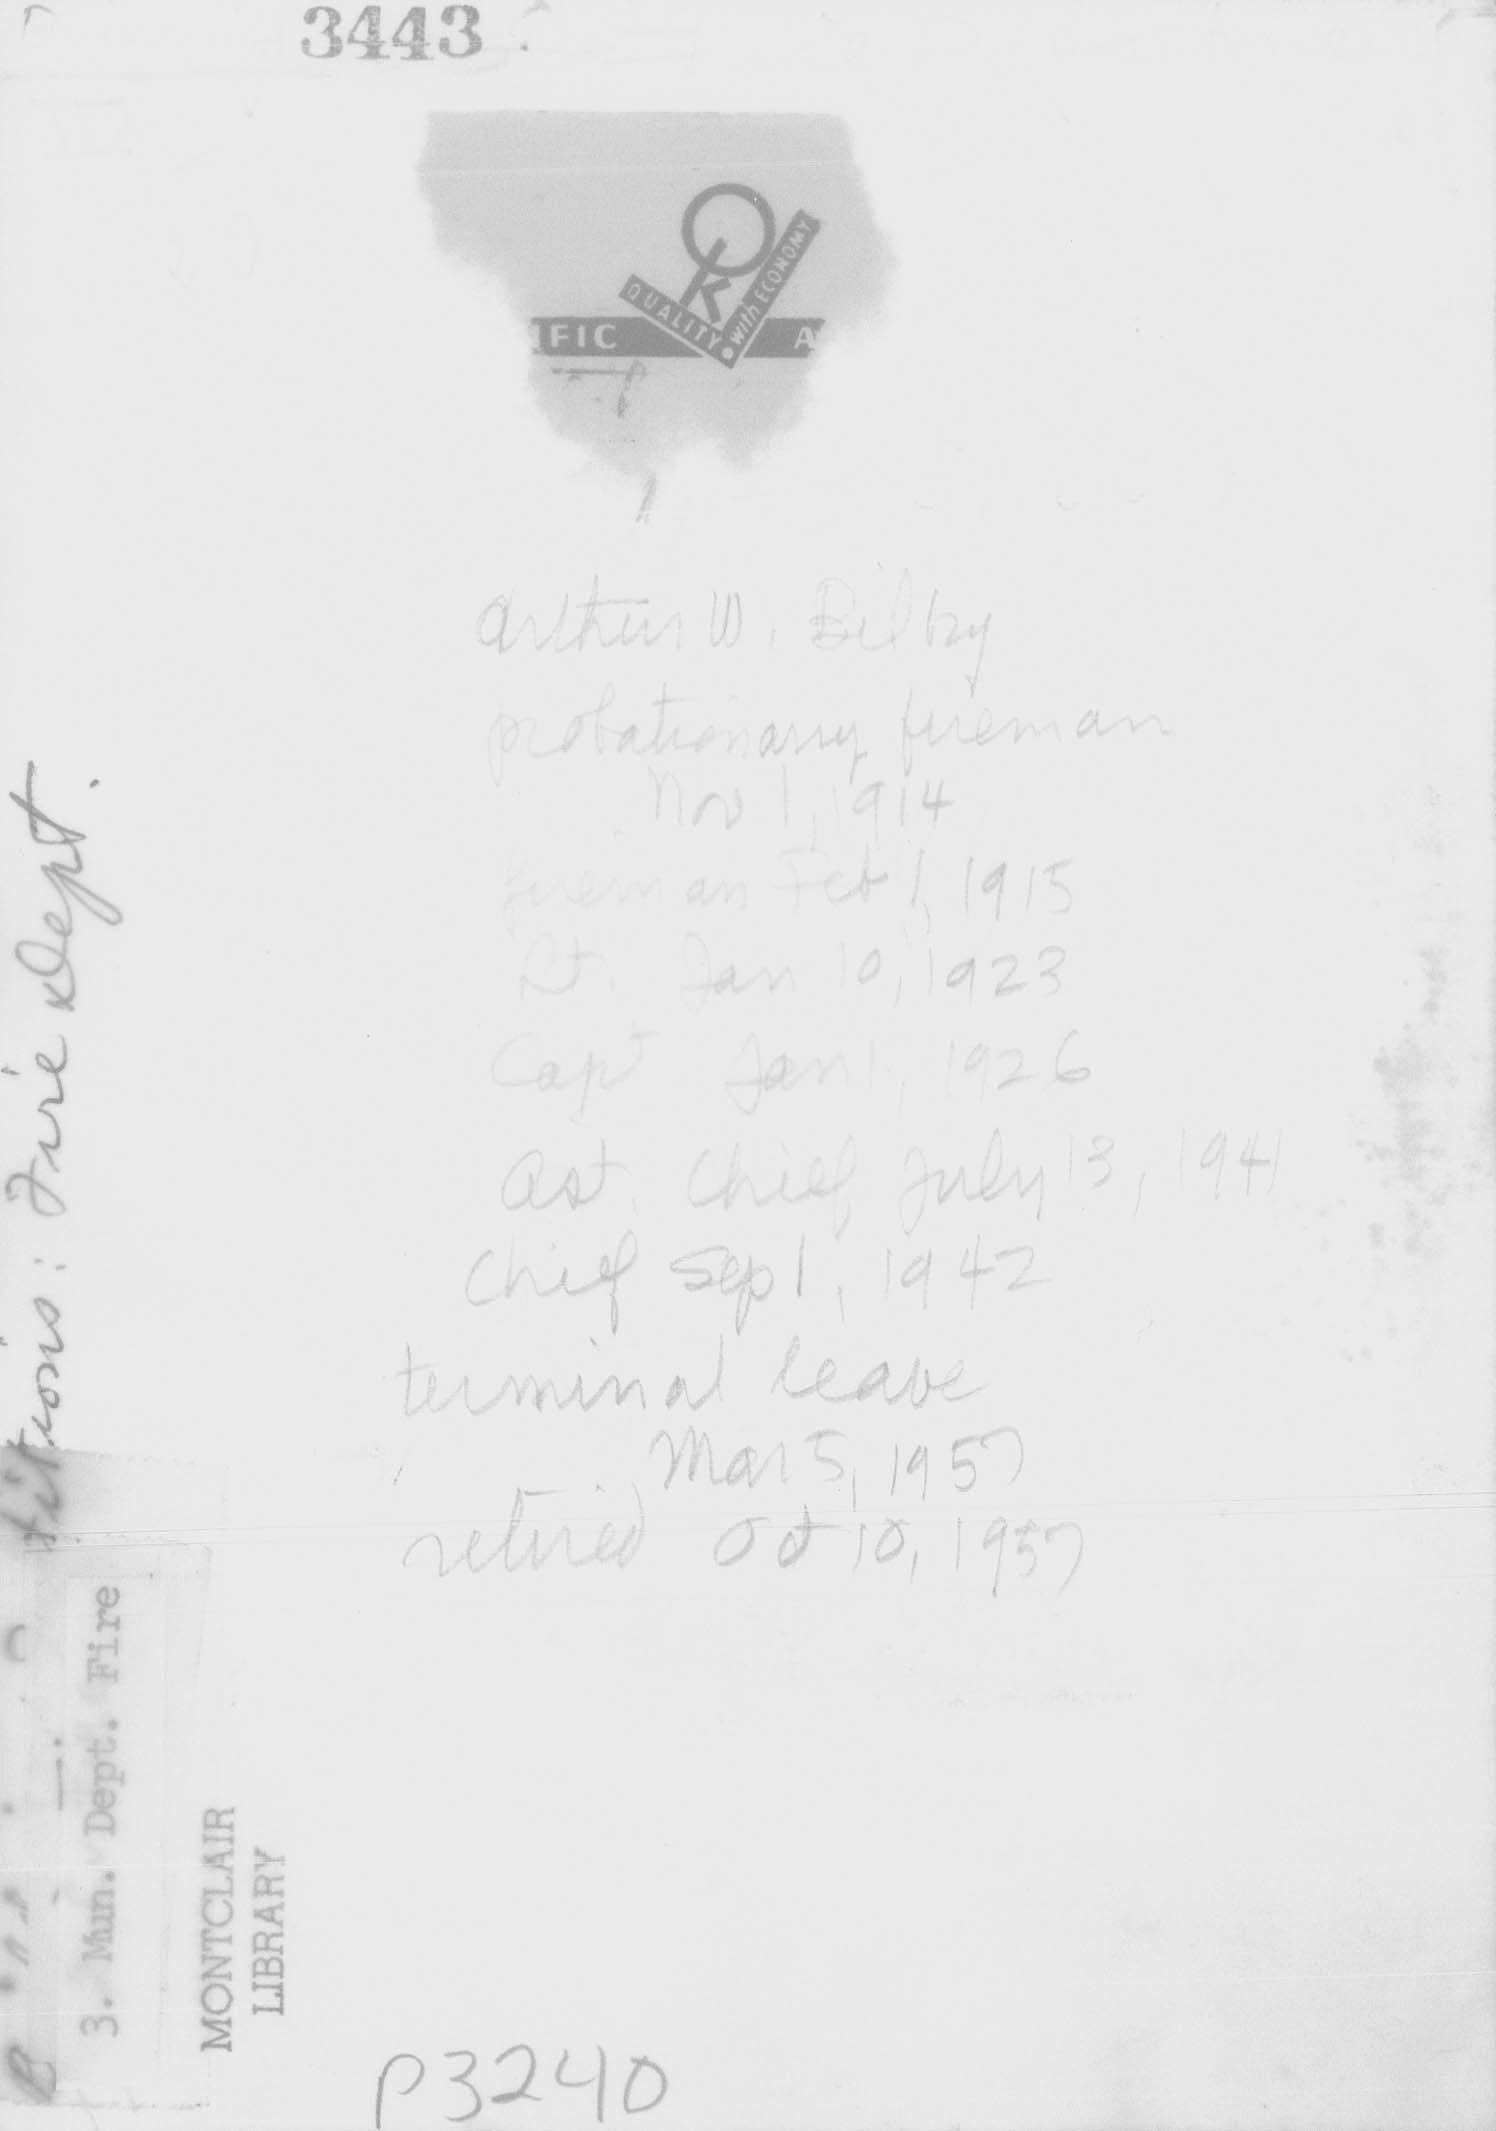 3443
QUALITY with ECONOMY
IFIC A
Arthur W. Bilby
probationary fireman
Nov 1, 1914
fireman Feb 1, 1915
Lt. Jan 10, 1923
Capt Jan 1, 1926
Ast. Chief July 13, 1941
Chief Sep 1, 1942
terminal leave
Mar 5, 1957
retired Oct 10, 1957
Fire Dept.
3. Mun. Dept. Fire
MONTCLAIR
LIBRARY
P3240